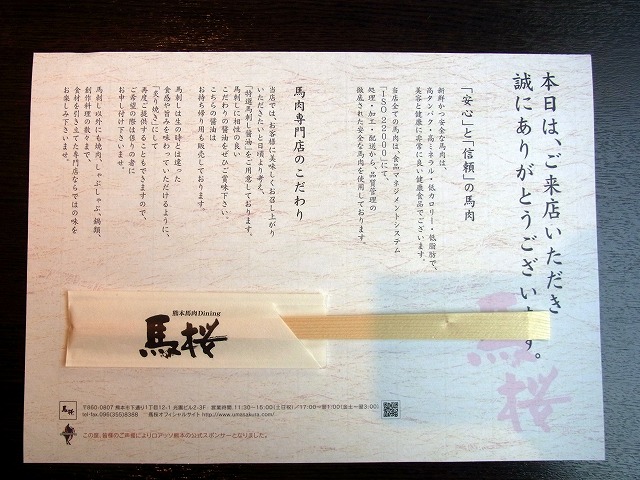 本日は、ご来店いただき
誠にありがとうございます。
「安心」と「信頼」の馬肉
新鮮かつ安全な馬肉は、
高タンパク・高ミネラル・低カロリー・低脂肪で、
美容と健康に非常に良い健康食品でございます。
当店全ての馬肉は、食品マネジメントシステム
「ISO22000」にて、
処理・加工・配送から、品質管理の
徹底された安全な馬肉を使用しております。
馬肉専門店のこだわり
当店では、お客様に美味しくお召し上がり
いただきたいと日頃より考え、
「特選馬刺し醤油」をご用意しております。
馬刺しに相性の良い
こだわりの醤油をぜひご賞味下さい。
こちらの醤油は
お持ち帰り用も販売しております。
馬刺しは生の時とは違った
食感や旨みを味わっていただけるように、
「炙り焼き」にして
再度ご提供することもできますので、
ご希望の際は係りの者に
お申し付け下さいませ。
馬刺し以外にも焼肉、しゃぶしゃぶ、鍋類、
創作料理の数々まで、
食材を引き立てた専門店ならではの味を
お楽しみ下さいませ。
熊本馬肉Dining
馬桜
馬桜
馬桜
〒860-0807 熊本市下通り1丁目12-1 光園ビル2・3F 営業時間 11:30～15:00(土日祝)/17:00～翌1:00(金土～翌3:00)
tel・fax.096(355)8388 馬桜オフィシャルサイト http://www.umasakura.com/
この度、皆様のご声援によりロアッソ熊本の公式スポンサーとなりました。